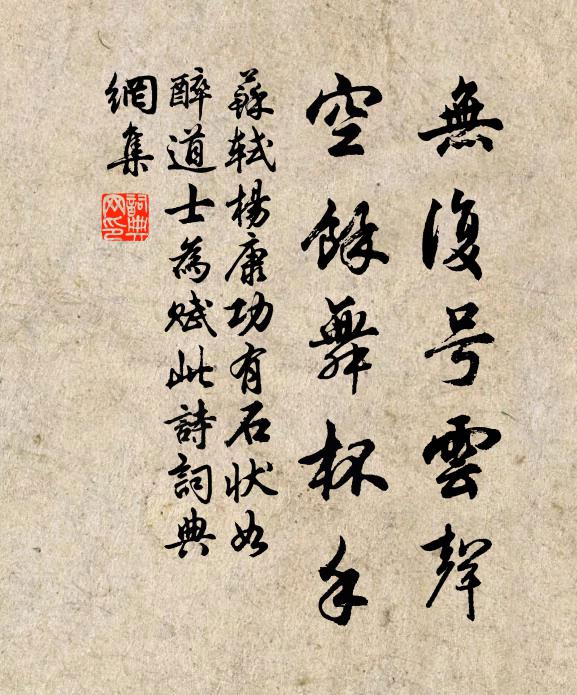 無復号雲聲
空餘舞杯手
蘇軾楊康功有石狀如
醉道士為賦此詩詞典
網集
詞典
网印